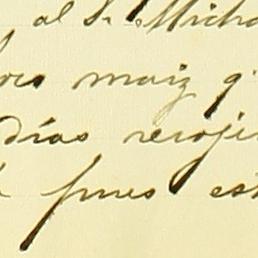 al Sr. Micha
maiz q
días recoji
pues est